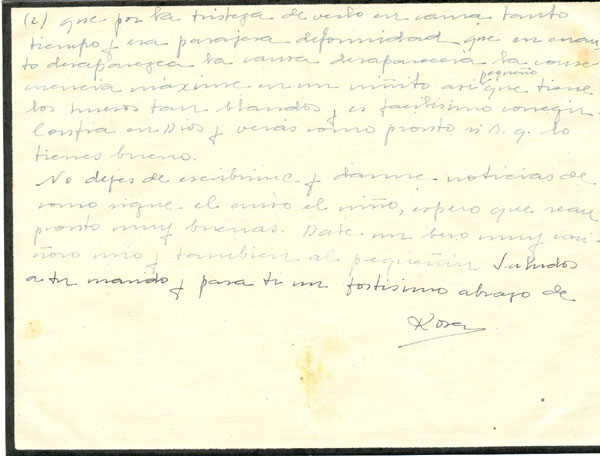 (2) que por la tristeza de verlo en cama tanto
tiempo y esa pasajera deformidad que en cuan-
to desaparezca la causa desaparecera la conse-
cuencia máxime en un niñito asi pequeño que tiene
los huesos tan blandos y es facilisimo corregir.
Confia en Dios y verás como pronto si D. q. lo
tienes bueno.
No dejes de escribirme y darme noticias de
como sigue el niño, espero que sean
pronto muy buenas. Dale un beso muy cari-
ñoso mio y tambien al pequeñin Saludos
a tu marido y para ti un fortisimo abrazo de
Rosa